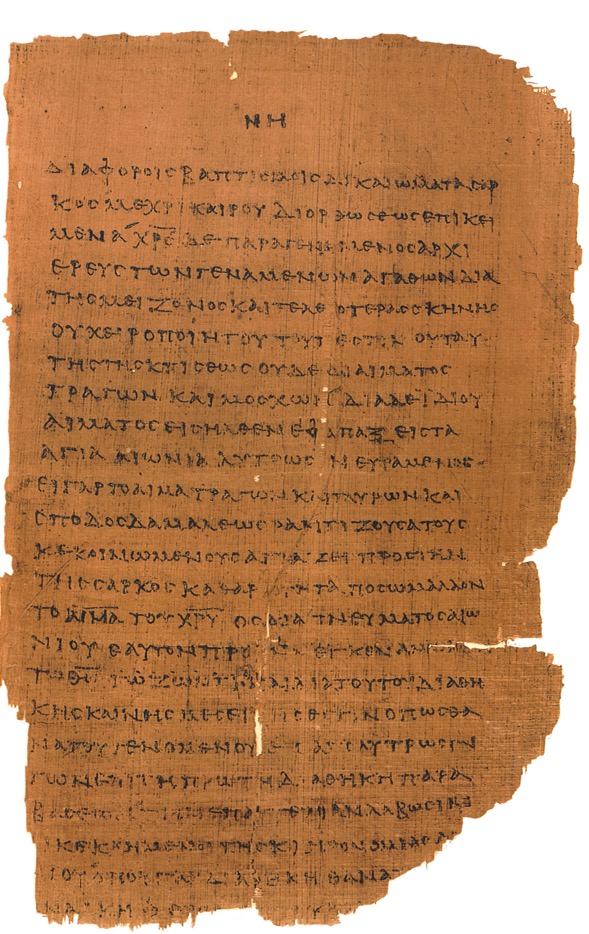 ΝΗ
ΔΙΑΦΟΡΟΙϹΒΑΠΤΙϹΜΟΙϹΔΙΚΑΙΩΜΑΤΑϹΑΡ
ΚΟϹΜΕΧΡΙΚΑΙΡΟΥΔΙΟΡΘΩϹΕΩϹΕΠΙΚΕΙ
ΜΕΝΑΧΡϹΔΕΠΑΡΑΓΕΝΑΜΕΝΟϹΑΡΧΙ
ΕΡΕΥϹΤΩΝΓΕΝΑΜΕΝΩΝΑΓΑΘΩΝΔΙΑ
ΤΗϹΜΕΙΖΟΝΟϹΚΑΙΤΕΛΕΙΟΤΕΡΑϹϹΚΗΝΗϹ
ΟΥΧΕΙΡΟΠΟΙΗΤΟΥΤΟΥΤΕϹΤΙΝΟΥΤΑΥ
ΤΗϹΤΗϹΚΤΙϹΕΩϹΟΥΔΕΔΙΑΙΜΑΤΟϹ
ΤΡΑΓΩΝΚΑΙΜΟϹΧΩΝΔΙΑΔΕΙΔΙΟΥ
ΑΙΜΑΤΟϹΕΙϹΗΛΘΕΝΕΦΑΠΑΞΕΙϹΤΑ
ΑΓΙΑΑΙΩΝΙΑΛΥΤΡΩϹΙΝΕΥΡΑΜΕΝΟϹ
ΕΙΓΑΡΤΟΑΙΜΑΤΡΑΓΩΝΚΑΙΤΑΥΡΩΝΚΑΙ
ϹΠΟΔΟϹΔΑΜΑΛΕΩϹΡΑΝΤΙΖΟΥϹΑΤΟΥϹ
ΚΕΚΟΙΝΩΜΕΝΟΥϹΑΓΙΑΖΕΙΠΡΟϹΤΗΝ
ΤΗϹϹΑΡΚΟϹΚΑΘΑΡΟΤΗΤΑΠΟϹΩΜΑΛΛΟΝ
ΤΟΑΙΜΑΤΟΥΧΡΥΟϹΔΙΑΠΝΕΥΜΑΤΟϹΑΙΩ
ΝΙΟΥΕΑΥΤΟΝΠΡΟϹΗΝΕΓΚΕΝΑΜΩ
ΤΩΘΩ ΖΩΝΤΙ ΔΙΑΤΟΥΤΟΔΙΑΘΗ
ΚΗϹΚΑΙΝΗϹΜΕϹΕΙΤΗϹΕϹΤΙΝΟΠΩϹΘΑ
ΝΑΤΟΥΓΕΝΟΜΕΝΟΥΕΙϹΑΠΟΛΥΤΡΩϹΙΝ
ΤΩΝΕΠΙΤΗΠΡΩΤΗΔΙΑΘΗΚΗΠΑΡΑ
ΒΑϹΕΩΝ ΛΑΒΩϹΙΝ
ΚΕΚΛΗΜΕΝΟΙΤΗϹ ΚΛΗΡΟΝΟΜΙΑϹ
ΟΠΟΥΓΑΡΔΙΑΘΗΚΗΘΑΝΑ